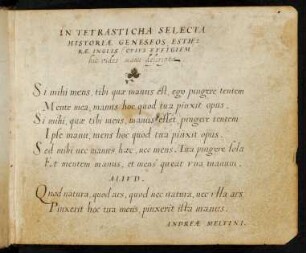 IN TETRASTICHA SELECTA
HISTORIÆ GENESEOS ESTHE-
RÆ INGLIS CUIUS EFFIGIEM
hic vides manu
Si mihi mens, tibi quæ manus est, ego pingere tentem
Mente mea, manus hoc quod tua pinxit opus.
Si mihi, quæ tibi mens, manus esset, pingere tentem
Ipse manu, mens hoc quod tua pinxit opus.
Sed mihi nec manus hæc, nec mens. Tua pingere sola
Et mentem manus, et mens queat una manum.
ALIVD.
Quod natura, quod ars, quod nec natura, nec vlla ars
Pinxerit hoc tua mens, pinxerit ista manus.
ANDREÆ MELVINI.